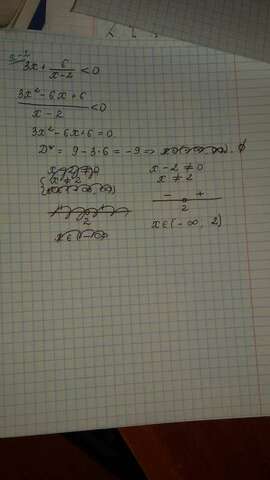 3x + 6/(x-2) < 0
(3x² - 6x + 6)/(x - 2) < 0
3x² - 6x + 6 = 0
D* = 9 - 3·6 = -9 => ∅
x ≠ 2
x - 2 ≠ 0
x ≠ 2
- +
2
2
x ∈ (-∞, 2)